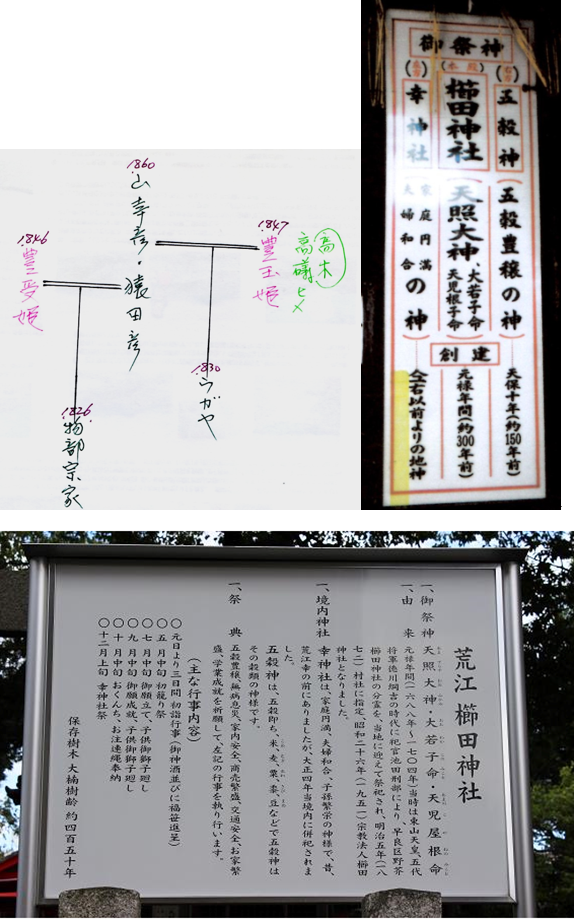 1860
山幸彦・猿田彦
1847
豊玉姫
高木
高礒ヒメ
1846
豊受姫
1830
うがや
1826
物部宗家
御祭神
(右方)
五穀神
(五穀豊穣の神)
天保十年(約150年前)
(本殿)
櫛田神社
(天照大神、大若子命・天児根子命)
創建
元禄年間(約300年前)
(左方)
幸神社
(家庭円満
夫婦和合の神)
全右以前よりの地神
荒江 櫛田神社
一、御祭神 天照大神・大若子命・天児屋根命
一、由来
元禄年間(一六八八〜一七〇四年)当時は東山天皇、五代
将軍徳川綱吉の時代に祀官池田刑部により、早良区野芥
櫛田神社の分霊を、当地に迎えて祭祀され、明治五年(一八
七二)村社に指定 昭和二十六年(一九五一)宗教法人櫛田
神社となりました。
一、境内神社
幸神社は、家庭円満、夫婦和合、子孫繁栄の神様で、昔、
荒江幸の前にありましたが、大正四年当境内に併祀されま
した。
五穀神は、五穀即ち、米、麦、粟、黍、豆などで五穀神は
その穀類の神様です。
一、祭典
五穀豊穣、無病息災、家内安全、商売繁盛、交通安全、お家繁
盛、学業成就を祈願して左記の行事を執り行います。
(主な行事内容)
〇元日より三日間 初詣行事(御神酒並びに福笹進呈)
〇五月中旬 初籠り祭
〇七月中旬 御願立て、子供御獅子廻し
〇九月中旬 御願成就、子供御獅子廻し
〇十月中旬 おくんち、お注連縄奉納
〇十二月上旬 幸神社祭
保存樹木 大楠樹齢 約四百五十年